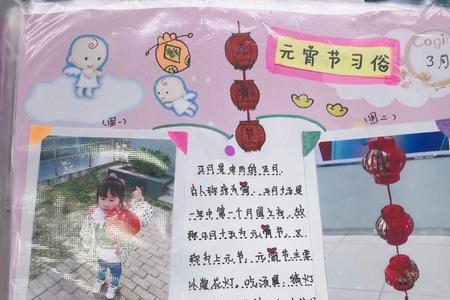 元宵节习俗
Cogi
3月
节
(图一)
(图二)
正月是农历的元月,
古人称夜为宵,正月十五是
一年中第一个月圆之夜,故
称正月十五为元宵节。又
称为上元节。元宵节主要
以赏花灯、吃汤圆、猜灯